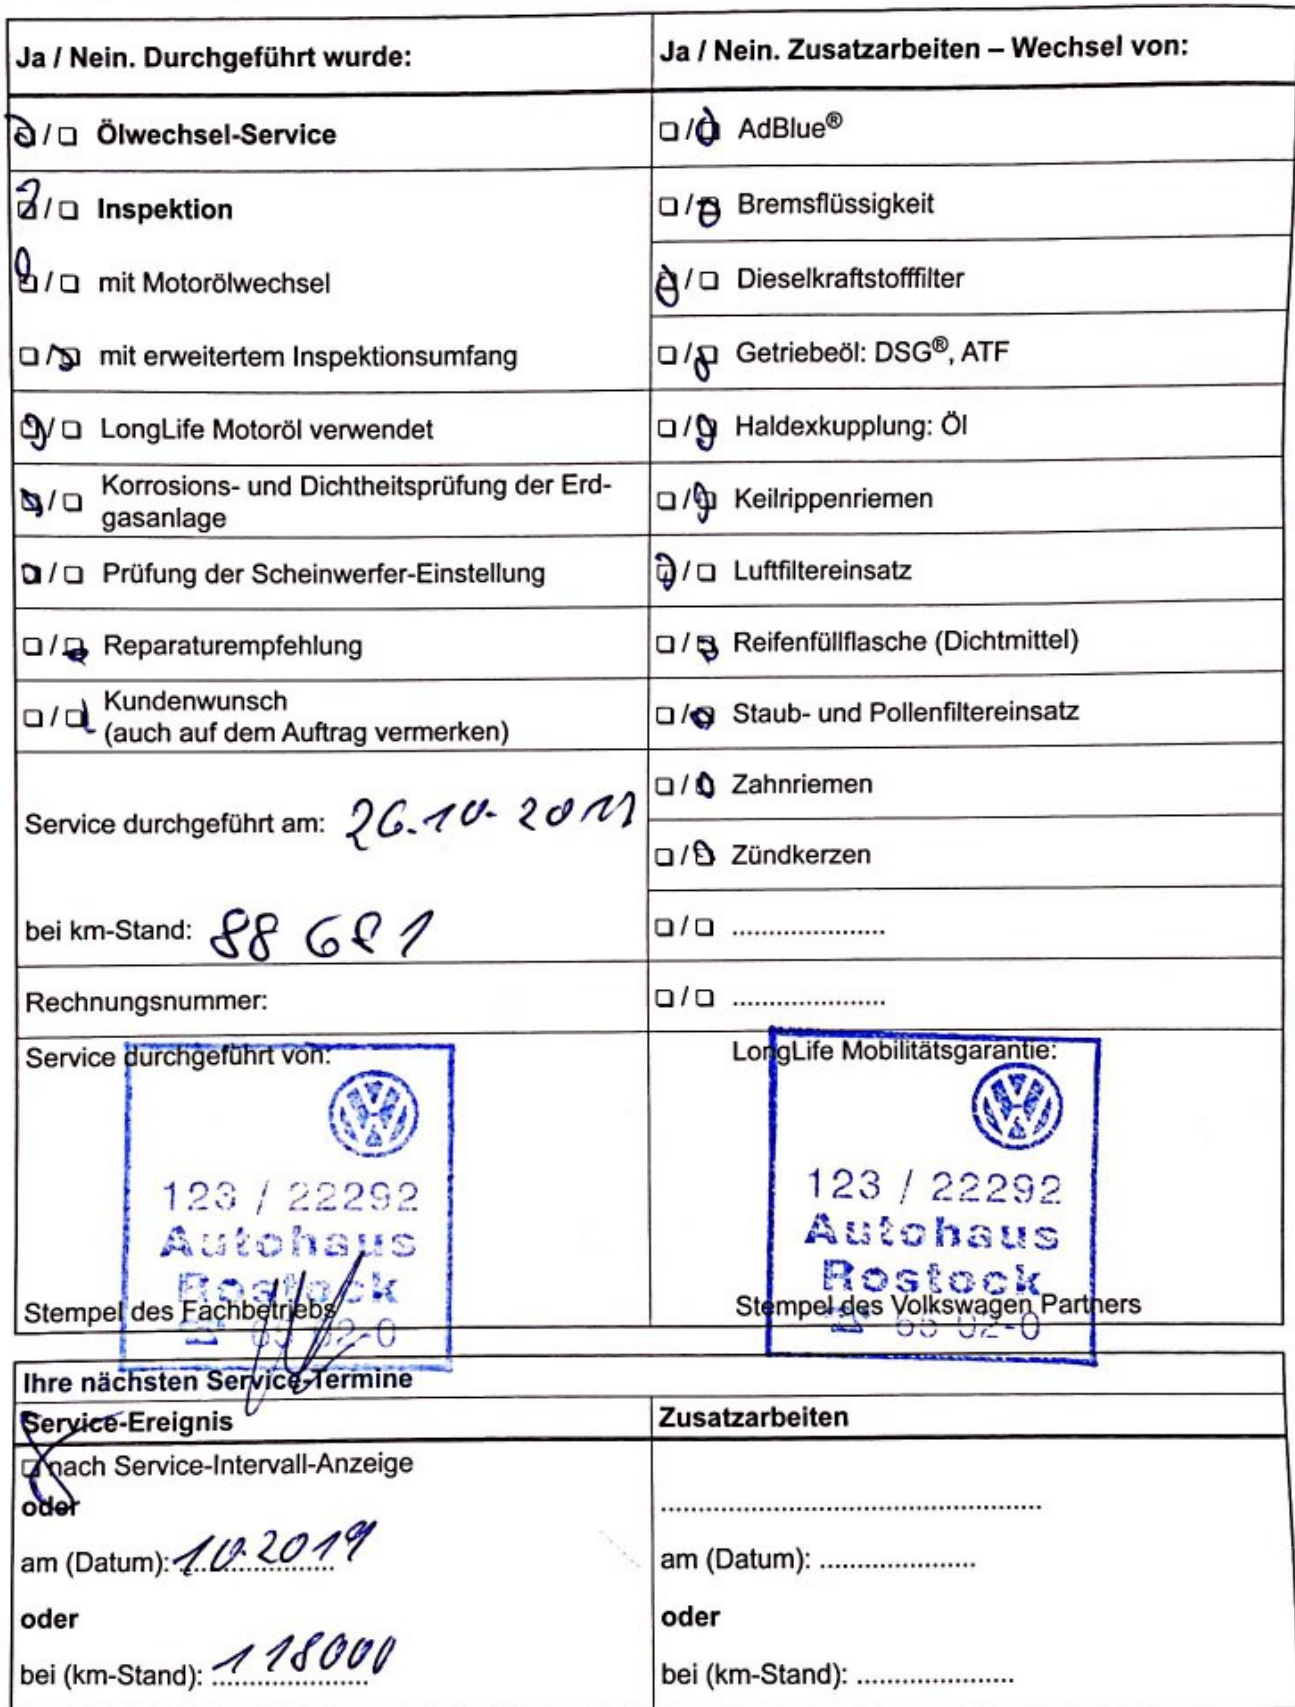 Ja / Nein. Durchgeführt wurde:
☒ / ☐ Ölwechsel-Service
☒ / ☐ Inspektion
☒ / ☐ mit Motorölwechsel
☐ / ☒ mit erweitertem Inspektionsumfang
☒ / ☐ LongLife Motoröl verwendet
☒ / ☐ Korrosions- und Dichtheitsprüfung der Erd-
gasanlage
☒ / ☐ Prüfung der Scheinwerfer-Einstellung
☐ / ☒ Reparaturempfehlung
☐ / ☒ Kundenwunsch
(auch auf dem Auftrag vermerken)
Service durchgeführt am: 26.10.
bei km-Stand: 88 681
Rechnungsnummer:
Service durchgeführt von:
123 / 22292
Autohaus
Rostock
Stempel des Fachbetriebs
Ja / Nein. Zusatzarbeiten – Wechsel von:
☐ / ☒ AdBlue®
☐ / ☒ Bremsflüssigkeit
☒ / ☐ Dieselkraftstofffilter
☐ / ☒ Getriebeöl: DSG®, ATF
☐ / ☒ Haldexkupplung: Öl
☐ / ☒ Keilrippenriemen
☒ / ☐ Luftfiltereinsatz
☐ / ☒ Reifenfüllflasche (Dichtmittel)
☐ / ☒ Staub- und Pollenfiltereinsatz
☐ / ☒ Zahnriemen
☐ / ☒ Zündkerzen
☐ / ☐ .....................
☐ / ☐ .....................
LongLife Mobilitätsgarantie:
123 / 22292
Autohaus
Rostock
Stempel des Volkswagen Partners
Ihre nächsten Service-Termine
Service-Ereignis
☒ nach Service-Intervall-Anzeige
oder
am (Datum): 10.2019
oder
bei (km-Stand): 118000
Zusatzarbeiten
....................................................
am (Datum): .....................
oder
bei (km-Stand): .....................